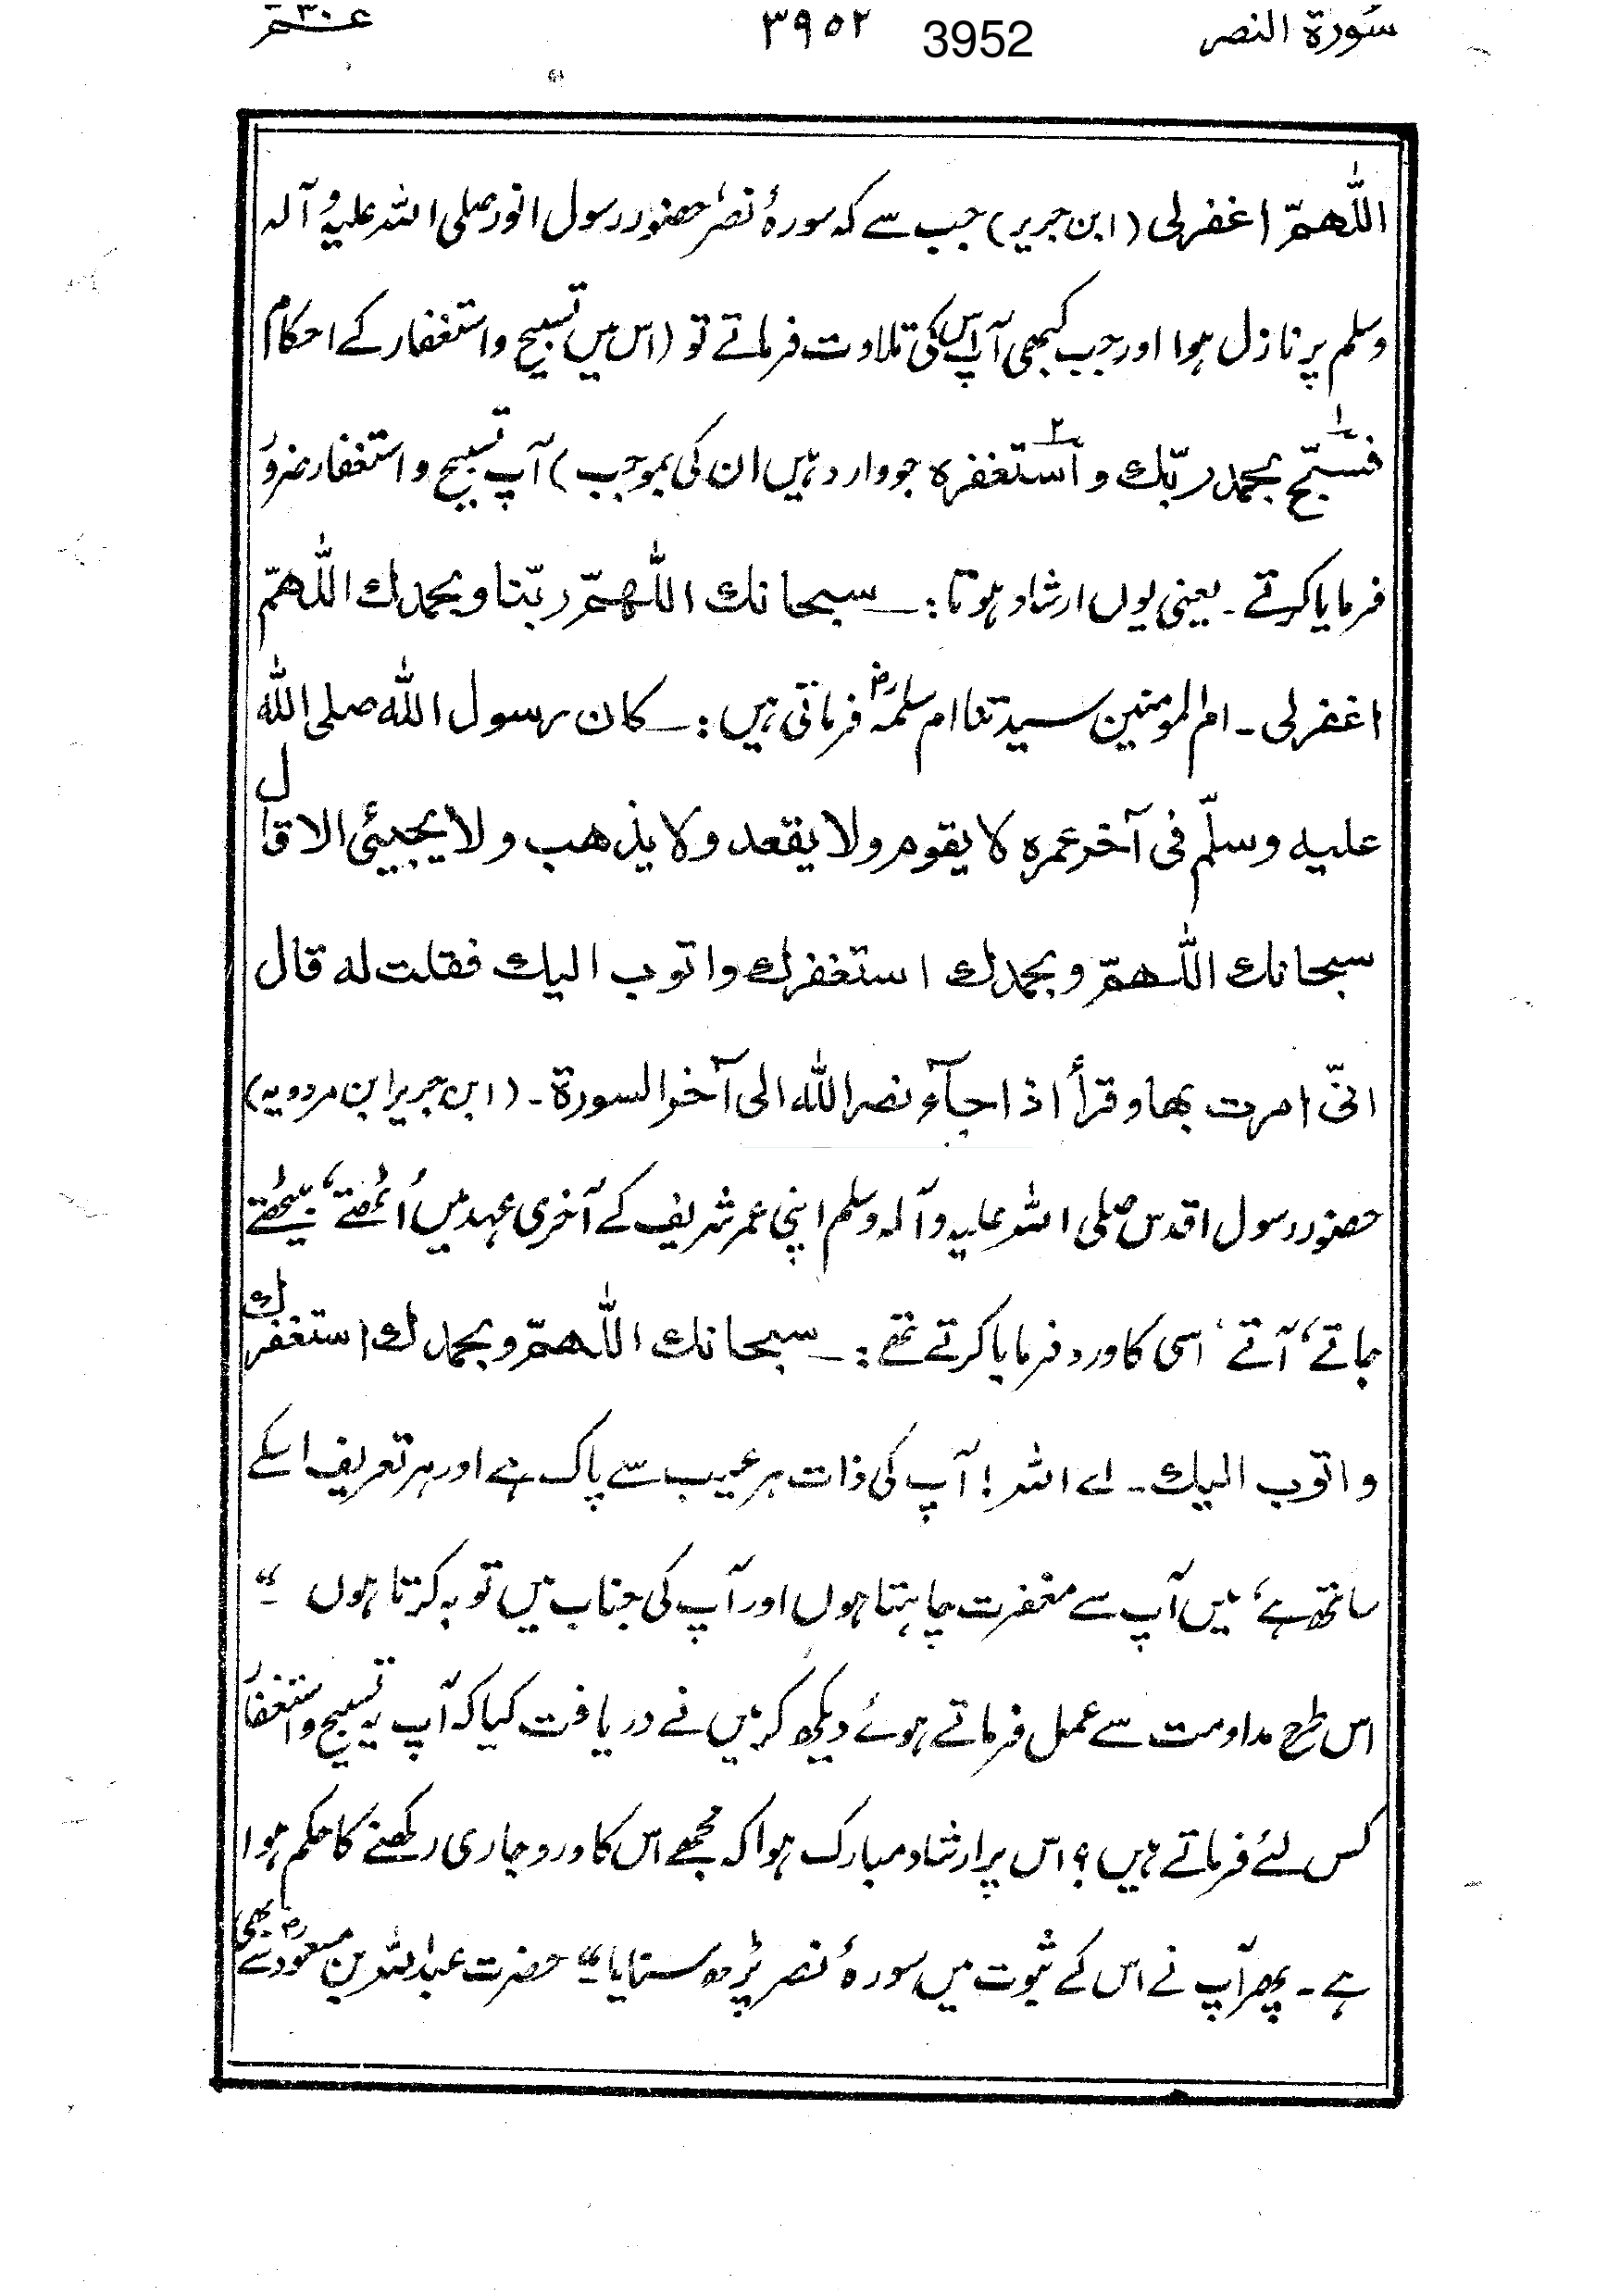 سورة النصر ۳۹۵۲ 3952 عمّ ۳۰
اللّٰهمّ اغفرلی (ابن جریر) جب سے کہ سورۂ نصر، حضور رسول انور صلی اللہ علیہ و آلہ
وسلم پر نازل ہوا اور جب کبھی آپ اس کی تلاوت فرماتے تو (اس میں تسبیح و استغفار کے احکام
فسبّح بحمد ربّك و استغفره جو وارد ہیں ان کی بموجب) آپ تسبیح و استغفار ضرور
فرمایا کرتے ۔ یعنی یوں ارشاد ہوتا :ـ سبحانك اللّٰهمّ ربّنا و بحمدك اللّٰهمّ
اغفرلی ـ ام المومنین سیدتنا ام سلمہؓ فرماتی ہیں :ـ كان رسول اللّٰه صلى اللّٰه
عليه وسلّم فى آخر عمره لا يقوم ولا يقعد ولا يذهب ولا يجيئى الا قال
سبحانك اللّٰهمّ وبحمدك استغفرك واتوب اليك فقلت له قال
انّى امرت بها وقرأ اذا جآء نصر اللّٰه الى آخر السورة ـ (ابن جریر ابن مردویہ)
حضور رسول اقدس صلی اللہ علیہ وآلہ وسلم اپنی عمر شریف کے آخری عہد میں اُٹھتے، بیٹھتے
جاتے، آتے، اسی کا ورد فرمایا کرتے تھے :ـ سبحانك اللّٰهمّ وبحمدك استغفرك
و اتوب اليك ـ اے اللہ ! آپ کی ذات ہر عیب سے پاک ہے اور ہر تعریف اسکے
ساتھ ہے، میں آپ سے مغفرت چاہتا ہوں اور آپ کی جناب میں توبہ کرتا ہوں ۔“
اس طرح مداومت سے عمل فرماتے ہوئے دیکھ کر میں نے دریافت کیا کہ آپ یہ تسبیح و استغفار
کس لئے فرماتے ہیں ؟ اس پر ارشاد مبارک ہوا کہ مجھے اس کا ورد جاری رکھنے کا حکم ہوا
ہے ۔ پھر آپ نے اس کے ثبوت میں سورۂ نصر پڑھ سنایا ۔“ حضرت عبداللہ بن مسعودؓ سے بھی